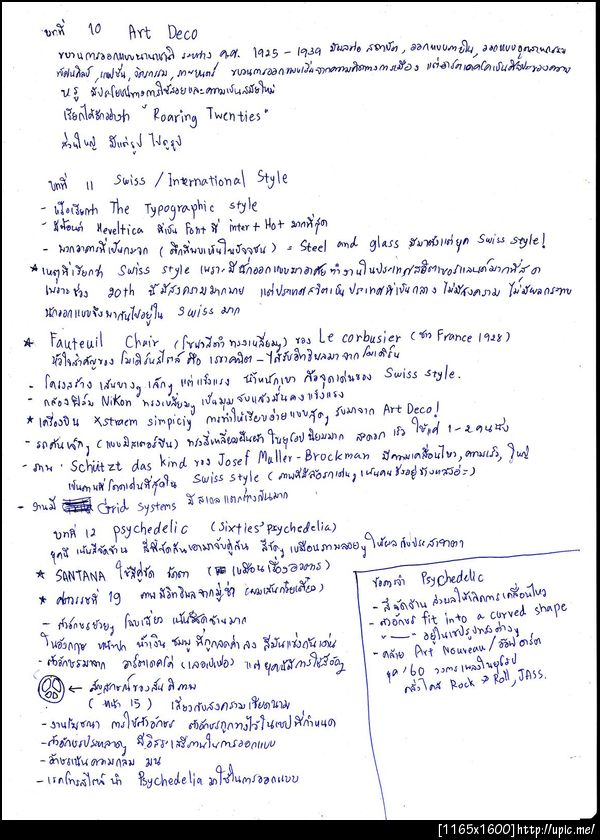 บทที่ 10 Art Deco
ขบวนการออกแบบนานาชาติ ระหว่าง ค.ศ. 1925 - 1939 มีผลต่อ สถาปัต, ออกแบบภายใน, ออกแบบอุตสาหกรรม
ทัศนศิลป์, แฟชั่น, จิตรกรรม, ภาพยนตร์ ขบวนการออกแบบ
หรู มีประโยชน์ทางการใช้สอยและความเป็นสมัยใหม่
เรียกได้อีกอย่างว่า "Roaring Twenties"
ส่วนใหญ่ มีแต่รูป ไปดูรูป
บทที่ 11 Swiss / International Style
- หรือเรียกว่า The Typographic style
- มีฟ้อนต์ Heveltica ที่เป็น Font ที่ inter + Hot มากที่สุด
- พวกอาคารที่เป็นกระจก (ตึกที่พบเห็นในปัจจุบัน) = Steel and glass มีมาตั้งแต่ยุค Swiss style!
* เหตุที่เรียกว่า Swiss style เพราะมีนักออกแบบมาอาศัย ทำงานในประเทศสวิตเซอร์แลนด์มากที่สุด
เพราะช่วง 20th นี้มีสงครามมากมาย แต่ประเทศสวิตเป็นประเทศที่เป็นกลาง ไม่มีสงคราม ไม่มีผลกระทบ
นักออกแบบจึงพากันไปอยู่ใน Swiss มาก
* Fauteuil Chair ( ) ของ Le corbusier (ชาว France 1928)
หัวใจสำคัญของ โมเดิร์นสไตล์ คือ เรขาคณิต - ได้รับอิทธิพลมาจาก โมเดิร์น
- โครงสร้าง เส้นบางๆ เล็กๆ แต่แข็งแรง น้ำหนักเบา คือจุดเด่นของ Swiss style.
- กล้องฟิล์ม Nikon ทรงเหลี่ยมๆ เป็นมุม จับแล้วมั่นคงแข็งแรง
* เครื่องบิน Xstraem simpiciy การทำให้เรียบง่ายแบบสุดๆ รับมาจาก Art Deco!
- รถคันเล็กๆ (แบบมิสเตอร์บีน) ทรงสี่เหลี่ยมผืนผ้า ในยุโรปนิยมมาก สะดวก เร็ว ใช้แค่ 1-2 คนนั่ง
- ภาพ . Schützt das kind ของ Josef Muller - Brockman มีความเคลื่อนไหว, ความเร็ว, ใหญ่
เป็นภาพที่โดดเด่นที่สุดใน Swiss style
- งานมี Grid Systems มีสเกลแตกต่างกันมาก
บทที่ 12 psychedelic (Sixties' Psychedelia)
ยุคนี้ เน้นสีจัดจ้าน สีที่ขัดกันเอามาจับคู่กัน สีจัดๆ เหมือนภาพลอยๆ ให้ผลกับประสาทตา
* SANTANA ใช้สีจัด
* ศตวรรษที่ 19
- ตัวอักษรอ้วนๆ โฉบเฉี่ยว เน้นสีจัดจ้านมาก
ในอังกฤษ น้ำเงิน ชมพู
- ตัวอักษรมาจาก อาร์ตเดคโค แต่ยุคนี้มีการใช้สีจัดๆ
← สัญลักษณ์ของสันติภาพ
(หน้า 15) เกี่ยวกับสงครามเวียดนาม
- งานโฆษณา การใช้ตัวอักษร ตัวอักษรถูกวางไว้ในเชปที่กำหนด
- ตัวอักษรประหลาดๆ มีอิสระเสรีภาพในการออกแบบ
- อักษรเน้นความกลม มน
- เรคโทรสไตน์ นำ Psychedelia มาใช้ในการออกแบบ
ข้อควรจำ Psychedelic
- สีจัดจ้าน ส่งผลให้เกิดการเคลื่อนไหว
- ตัวอักษร fit into a curved shape
- —"— อยู่ในเชปรูปทรงต่างๆ
- คล้าย Art Nouveau / อัฟอาร์ต
ยุค '60 วงการเพลงในยุโรป
กำลังไหล Rock → Roll, JASS.
[1165x1600] http://upic.me/